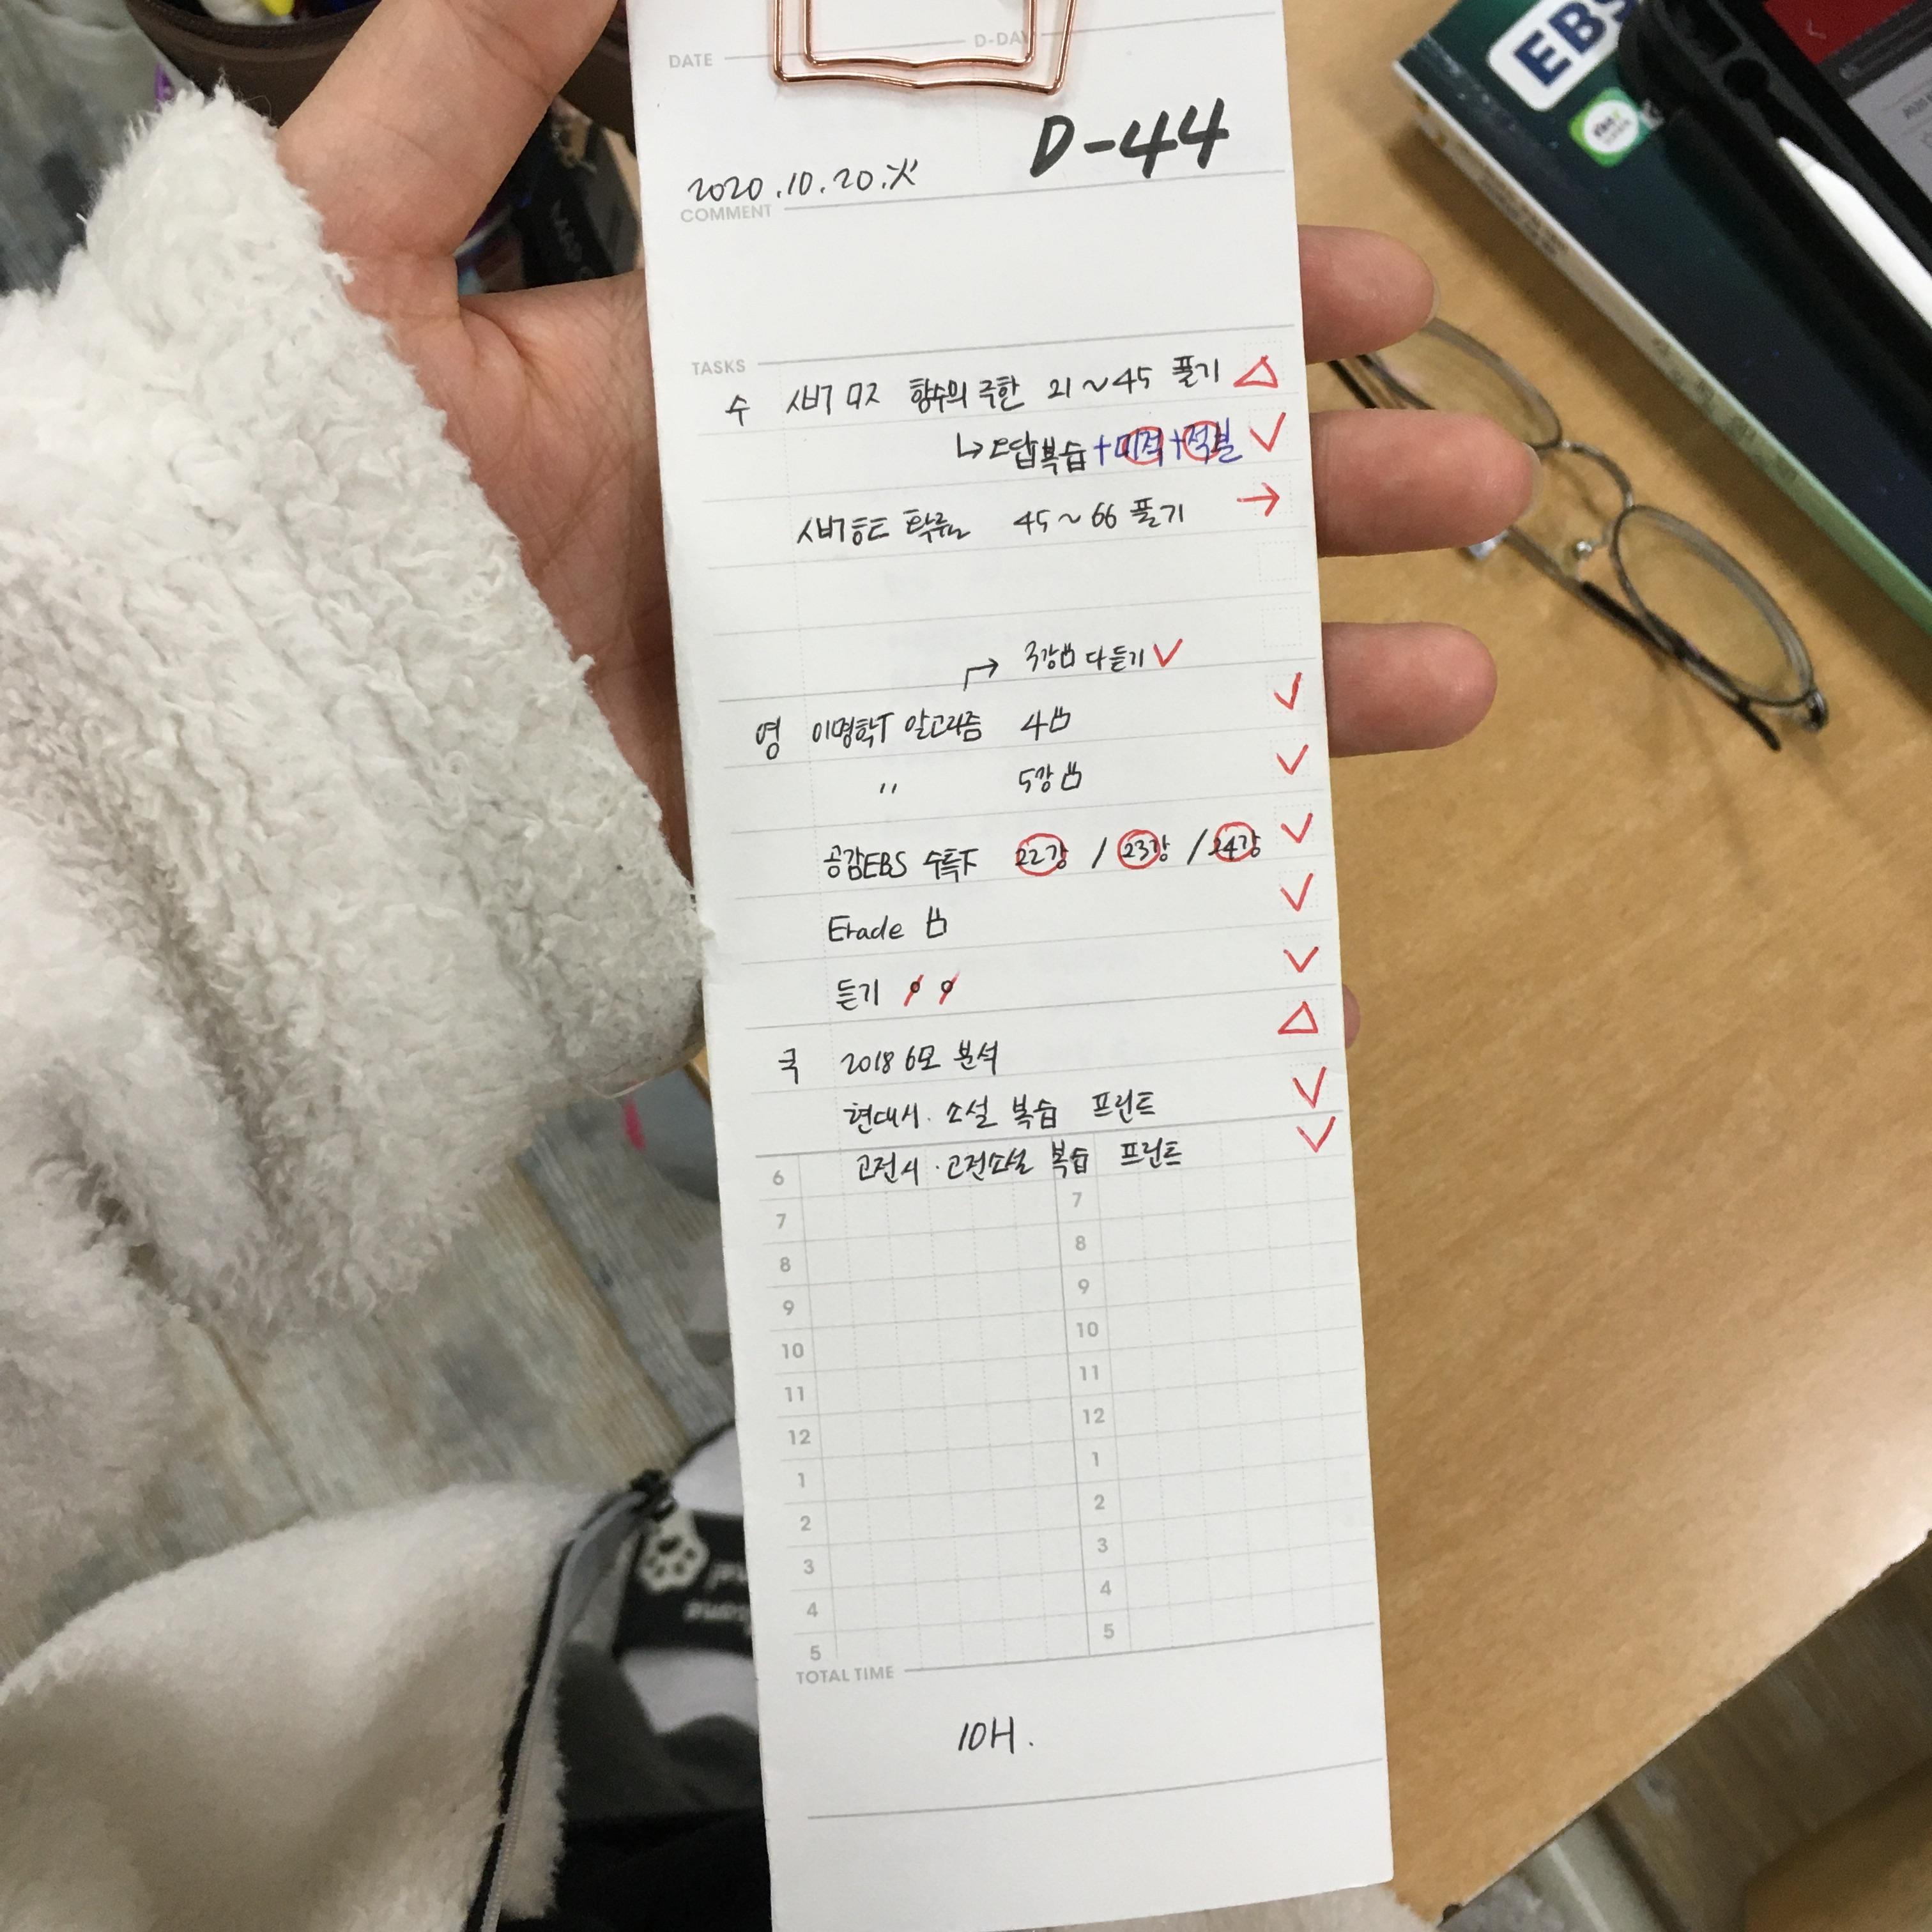 DATE
D-DAY
D-44
2020.10.20.火
COMMENT
TASKS
수 함수의 극한 21~45 풀기
↳ 오답복습+미적+적분
45~66 풀기
→ 3강 다 듣기
영 이명학T 알고리즘 4
〃 5강
공감EBS 수특下 22강 / 23강 / 24강
Erade
듣기
국 2018 6모 분석
현대시·소설 복습 프린트
고전시·고전소설 복습 프린트
6
7 7
8 8
9 9
10 10
11 11
12 12
1 1
2 2
3 3
4 4
5 5
TOTAL TIME
10H.
EBS